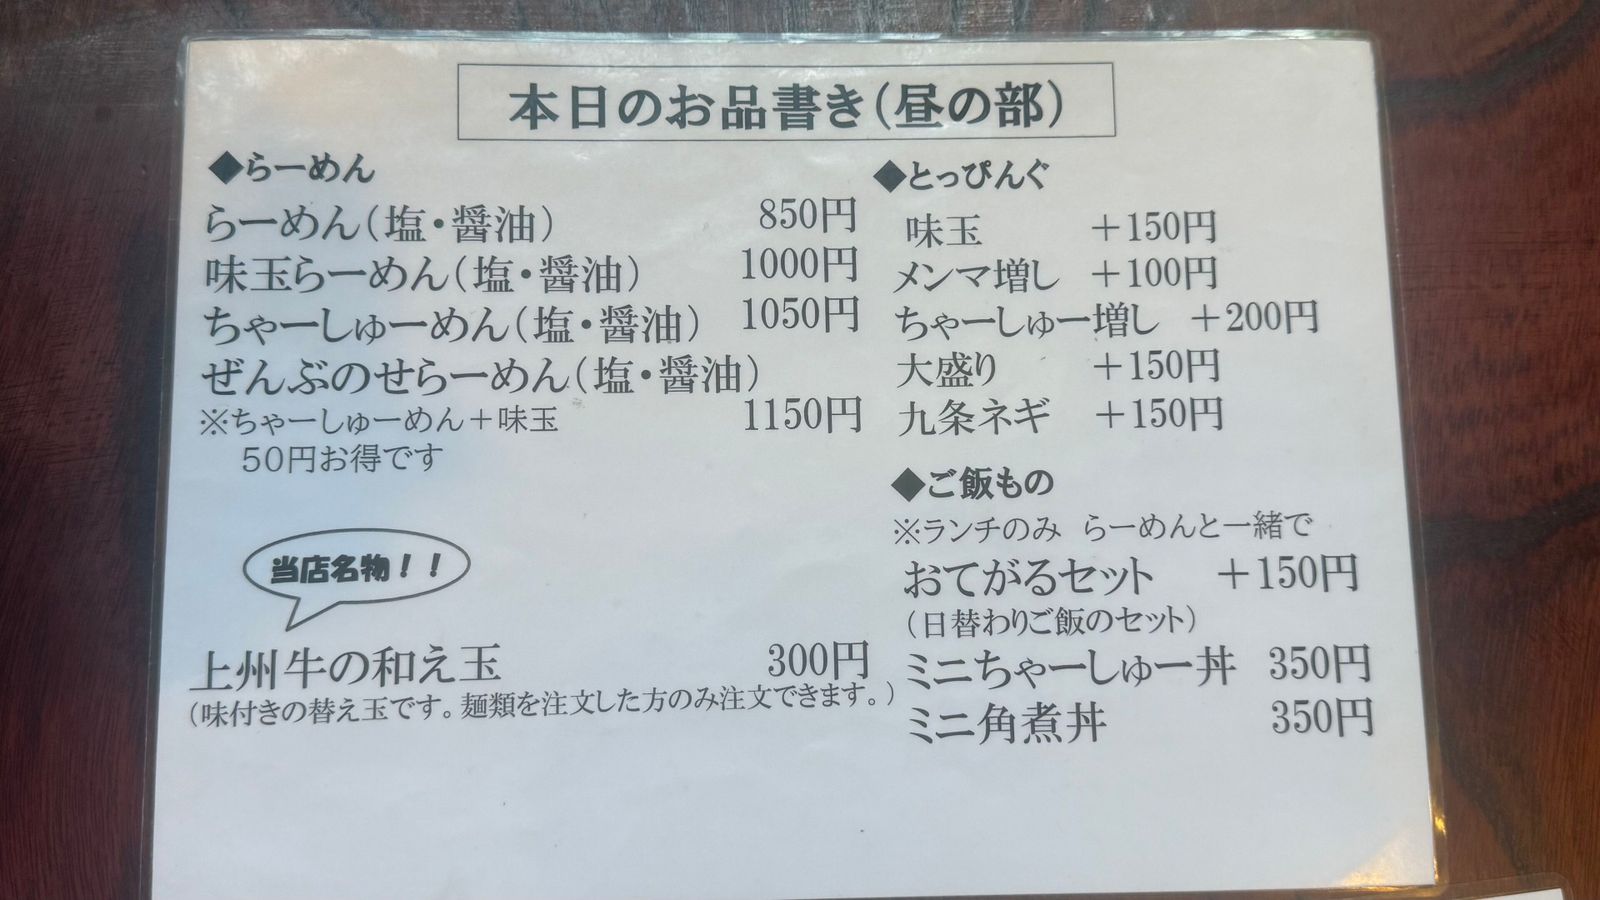 本日のお品書き（昼の部）
◆らーめん
らーめん（塩・醤油） 850円
味玉らーめん（塩・醤油） 1000円
ちゃーしゅーめん（塩・醤油） 1050円
ぜんぶのせらーめん（塩・醤油）
※ちゃーしゅーめん＋味玉 1150円
50円お得です
当店名物！！
上州牛の和え玉 300円
（味付きの替え玉です。麺類を注文した方のみ注文できます。）
◆とっぴんぐ
味玉 ＋150円
メンマ増し ＋100円
ちゃーしゅー増し ＋200円
大盛り ＋150円
九条ネギ ＋150円
◆ご飯もの
※ランチのみ らーめんと一緒で
おてがるセット ＋150円
（日替わりご飯のセット）
ミニちゃーしゅー丼 350円
ミニ角煮丼 350円